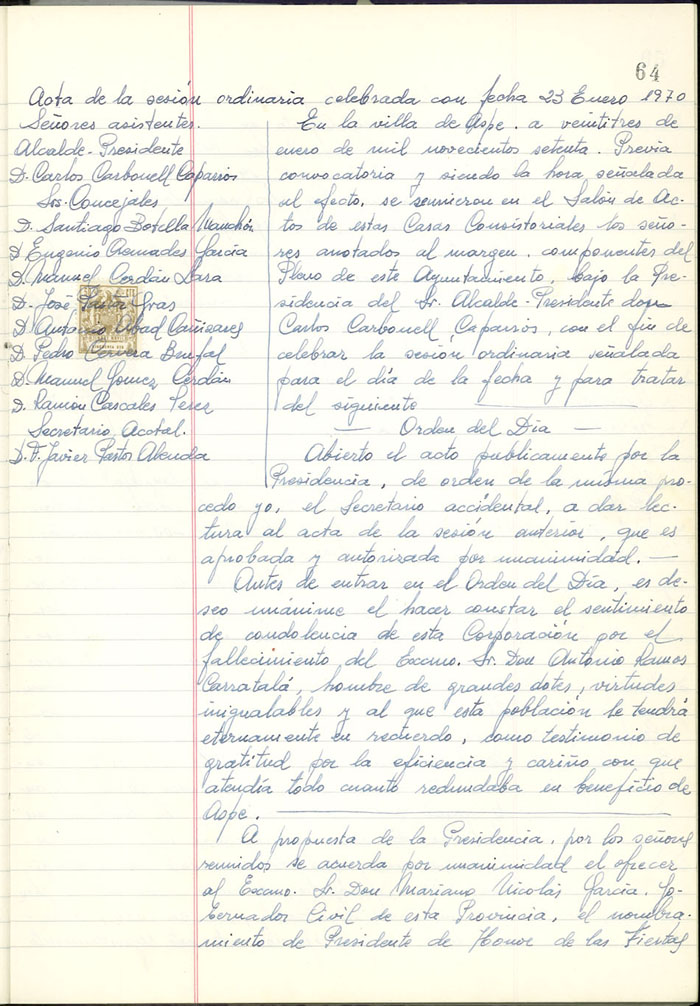 64
Acta de la sesión ordinaria celebrada con fecha 23 Enero 1970
Señores asistentes.
Alcalde-Presidente
D. Carlos Carbonell Caparrós
Sres. Concejales
D. Santiago Botella Manchón
D. Eugenio Cremades García
D. Manuel Cerdán Lara
D. José Gras
D. Antonio Abad Cañizares
D. Pedro Cervera Brufal
D. Manuel Gomez Cerdán
D. Ramón Cascales Perez
Secretario Acctal.
D. F. Javier Pastor Alenda
En la villa de Aspe, a veintitres de
enero de mil novecientos setenta. Previa
convocatoria y siendo la hora señalada
al efecto, se reunieron en el Salón de Ac-
tos de estas Casas Consistoriales los seño-
res anotados al margen, componentes del
Pleno de este Ayuntamiento, bajo la Pre-
sidencia del Sr. Alcalde-Presidente don
Carlos Carbonell Caparros, con el fin de
celebrar la sesión ordinaria señalada
para el día de la fecha y para tratar
del siguiente
— Orden del Día —
Abierto el acto publicamente por la
Presidencia, de orden de la misma pro-
cedo yo, el Secretario accidental, a dar lec-
tura al acta de la sesión anterior, que es
aprobada y autorizada por unanimidad. —
Antes de entrar en el Orden del Día, es de-
seo unánime el hacer constar el sentimiento
de condolencia de esta Corporación por el
fallecimiento del Excmo. Sr. Don Antonio Ramos
Carratalá, hombre de grandes dotes, virtudes
inigualables y al que esta población le tendrá
eternamente en recuerdo, como testimonio de
gratitud por la eficiencia y cariño con que
atendía todo cuanto redundaba en beneficio de
Aspe.
A propuesta de la Presidencia, por los señores
reunidos se acuerda por unanimidad el ofrecer
al Excmo. Sr. Don Mariano Nicolás García, Go-
bernador Civil de esta Provincia, el nombra-
miento de Presidente de Honor de las Fiestas